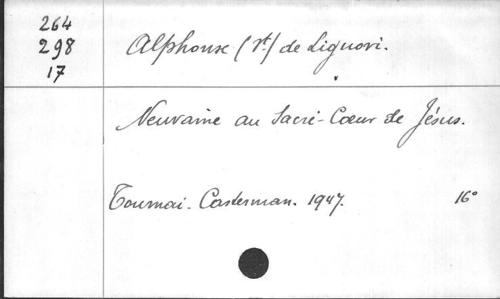 264
298
17
Alphonse (St.) de Liguori.
Neuvaine au Sacré-Cœur de Jésus.
Tournai. Casterman. 1947. 16°